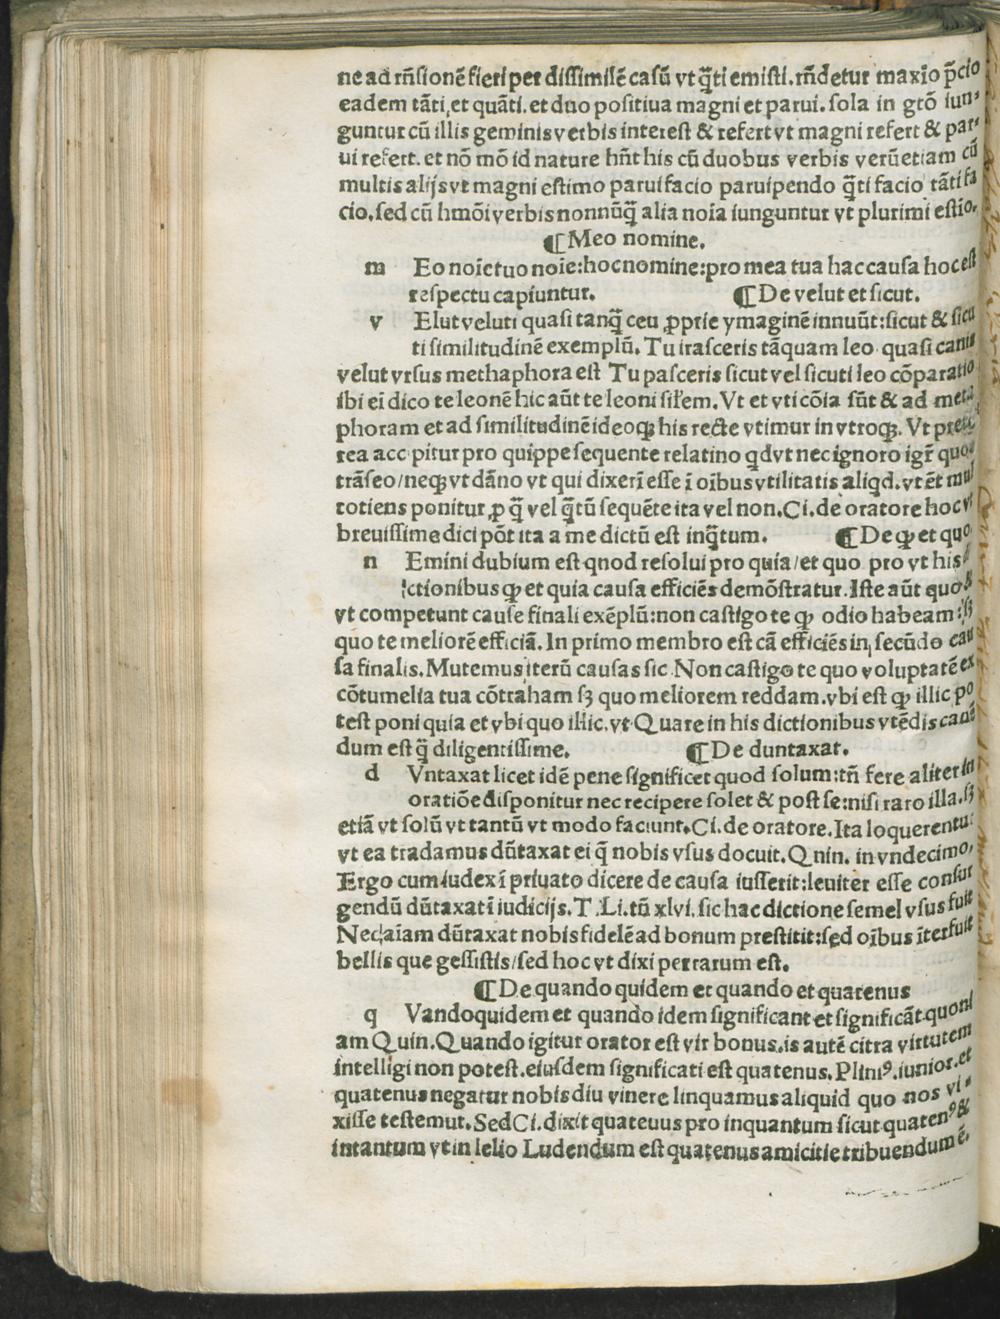 ne ad rn̄sionē fieri per dissimilē casū vt q̄ti emisti. rn̄detur maxīo p̄cio
eadem tāti, et quāti. et duo positiua magni et parui. sola in gtō iun⸗
guntur cū illis geminis verbis interest & refert vt magni refert & par⸗
ui refert. et nō mō id nature hn̄t his cū duobus verbis verū etiam cū
multis alijs vt magni estimo parui facio paruipendo q̄ti facio tāti fa
cio. sed cū hmōi verbis nonnūq̄ alia noīa iunguntur vt plurimi estio.
¶ Meo nomine.
m Eo noīe tuo noīe: hoc nomine: pro mea tua hac causa hoc est
respectu capiuntur. ¶ De velut et sicut.
v Elut veluti quasi tanq̄ ceu ꝓprie ymaginē innuūt: sicut & sicu
ti similitudinē exemplū. Tu irasceris tāquam leo quasi canis
velut vrsus methaphora est Tu pasceris sicut vel sicuti leo cōparatio
ibi eī dico te leonē hic aūt te leoni sil'em. Vt et vti cōīa sūt & ad meta
phoram et ad similitudinē ideoqꝫ his recte vtimur in vtroqꝫ. Vt prete
rea acc pitur pro quippe sequente relatino qd vt nec ignoro igr̄ quod
trāseo/neqꝫ vt dāno vt qui dixerī esse ī oībus vtilitatis aliqd. vt ēt mul
totiens ponitur, ꝓ q̄ vel q̄tū sequēte ita vel non. Ci. de oratore hoc vt
breuissime dici pōt ita a me dictū est inq̄tum. ¶ De ꝙ et quo
n Emini dubium est qnod resolui pro quia/et quo pro vt his
ctionibus ꝙ et quia causa efficiēs demōstratur. Iste aūt quo &
vt competunt cause finali exēplū: non castigo te ꝙ odio habeam: sꝫ
quo te meliorē efficiā. In primo membro est cā efficiēs in secūdo cau
sa finalis. Mutemus iterū causas sic Non castigo te quo voluptatē ex
cōtumelia tua cōtraham sꝫ quo meliorem reddam. vbi est ꝙ illic po
test poni quia et vbi quo illic. vt Quare in his dictionibus vtēdis canē
dum est q̄ diligentissime. ¶ De duntaxat.
d Vntaxat licet idē pene significet quod solum: tn̄ fere aliter in
oratiōe disponitur nec recipere solet & post se: nisi raro illa. sꝫ
etiā vt solū vt tantū vt modo faciunt. Ci. de oratore. Ita loquerentur
vt ea tradamus dūtaxat ei q̄ nobis vsus docuit. Qnin. in vndecimo.
Ergo cum iudex ī priuato dicere de causa iusserit: leuiter esse consur
gendū dūtaxat ī iudicijs. T. Li. tū xlvi. sic hac dictione semel vsus fuit
Nec aīam dūtaxat nobis fidelē ad bonum prestitit: sed oībus īterfuit
bellis que gessistis/sed hoc vt dixi perrarum est.
¶ De quando quidem et quando et quatenus
q Vandoquidem et quando idem significant et significāt quoni
am Quin. Quando igitur orator est vir bonus. is autē citra virtutem
intelligi non potest. eiusdem significati est quatenus. Pliniꝰ. iunior. et
quatenus negatur nobis diu vinere linquamus aliquid quo nos vi⸗
xisse testemut. Sed Ci. dixit quateuus pro inquantum sicut quatenꝰ &
intantum vt in lelio Ludendum est quatenus amicitie tribuendum ē.